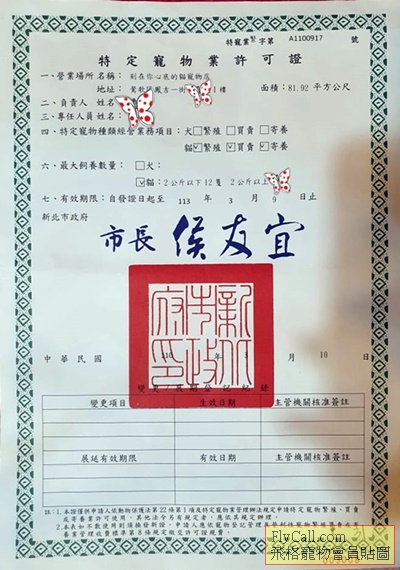 特寵業繁字第 A1100917 號
特定寵物業許可證
一、營業場所名稱：刻在你心底的貓寵物店
地址：鶯歌區鳳吉一街 1樓 面積：81.92 平方公尺
二、負責人 姓名
三、專任人員姓名：
四、特定寵物種類經營業務項目：犬□繁殖 □買賣 □寄養
貓☑繁殖 ☑買賣 ☑寄養
六、最大飼養數量：□犬：
☑貓：2公斤以下12隻 2公斤以上
七、有效期限：自發證日起至 113 年 3 月 9 日止
新北市政府
市長 侯友宜
新北市政府印
中華民國 110 年 3 月 10 日
變更／展期登記紀錄
變更項目 生效日期 主管機關核准簽註
展延有效期限 有效日期 主管機關核准簽註
註：1.本證僅供申請人依動物保護法第22條第1項及特定寵物業管理辦法規定申請特定寵物繁殖、買賣
或寄養業許可使用，其他法令另有規定者，應依其規定辦理。
FlyCall.com
飛格寵物會員貼圖